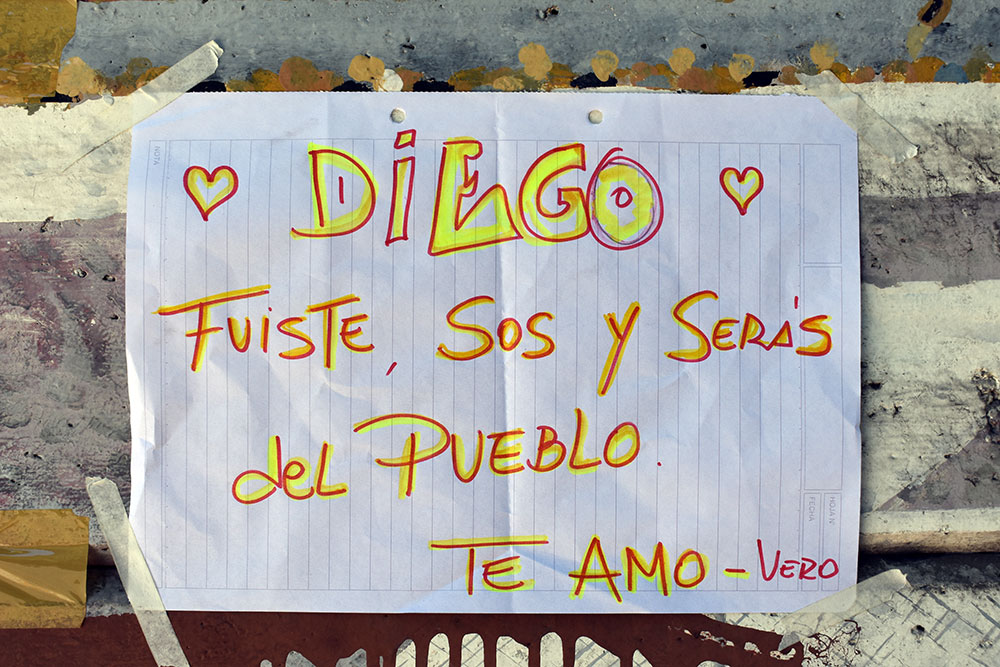 DiEGO
FuisTE, SOS y SERÁS
del PUEBLO.
TE AMO - VERO
NOTA
HOJA N°
FECHA